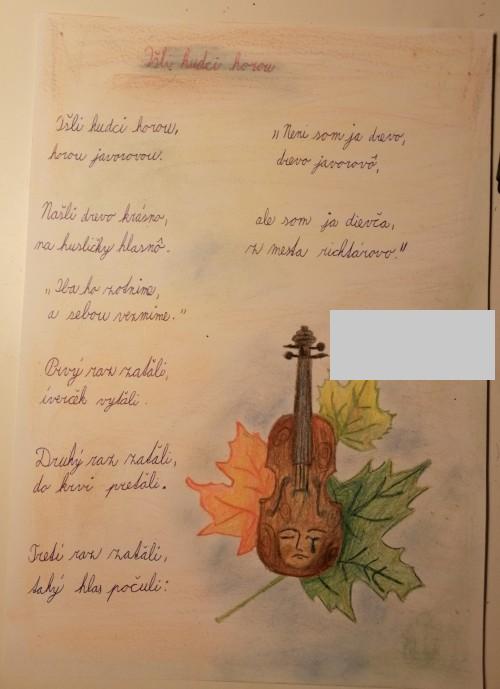 Išli hudci horou
Išli hudci horou,
horou javorovou.
Našli drevo krásno,
na husličky hlasnô.
„Iba ho zotnime,
a sebou vezmime."
Prvý raz zaťali,
íverčěk vyťali.
Druhý raz zaťali,
do krvi preťali.
Tretí raz zaťali,
taký hlas počuli:
„Neni som ja drevo,
drevo javorovô,
ale som ja dievča,
z mesta richtárovo."